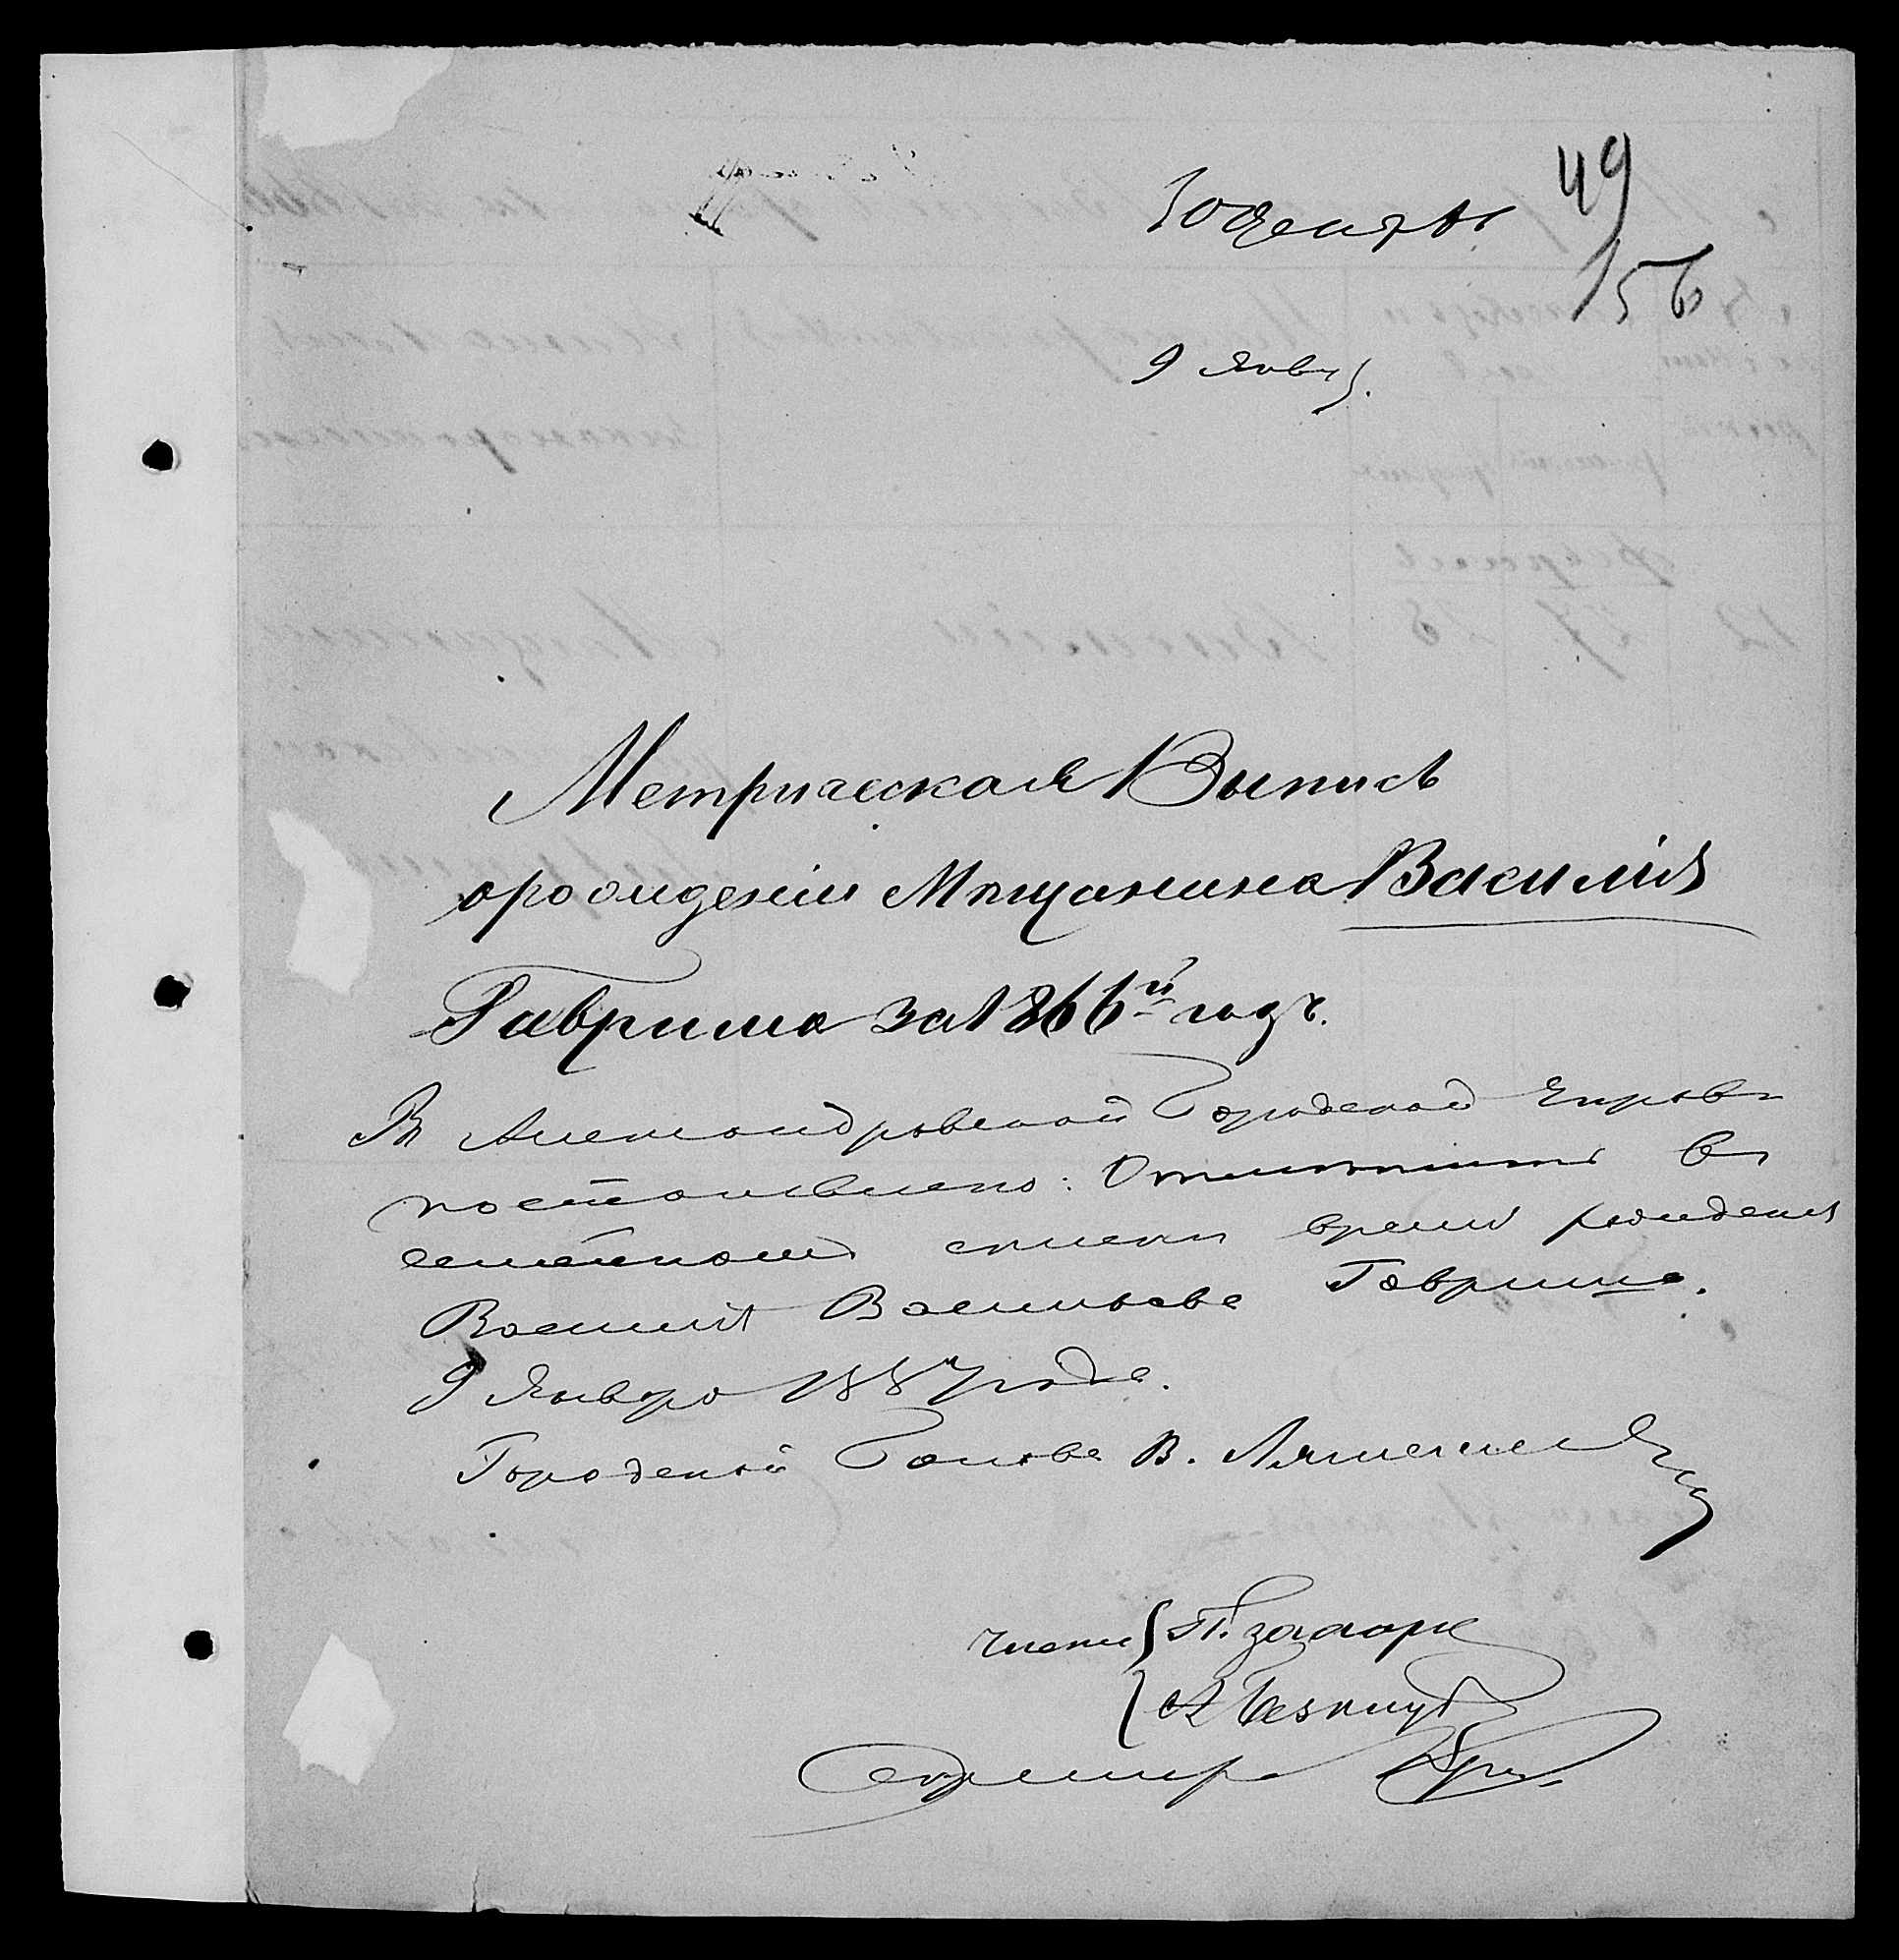 49
30 Декабр
156
9 Янв.
Метрическая Выпись
о рождении Мѣщанина Василія
Гаврила за 1866й годъ.
Въ Александровской Городской Управѣ
постановлено: Отмѣтить въ
семейномъ спискѣ время рожденія
Василія Васильева Гаврила.
9 Января 1887 года.
Городской Голова В.
Члены П.
А
Секретарь